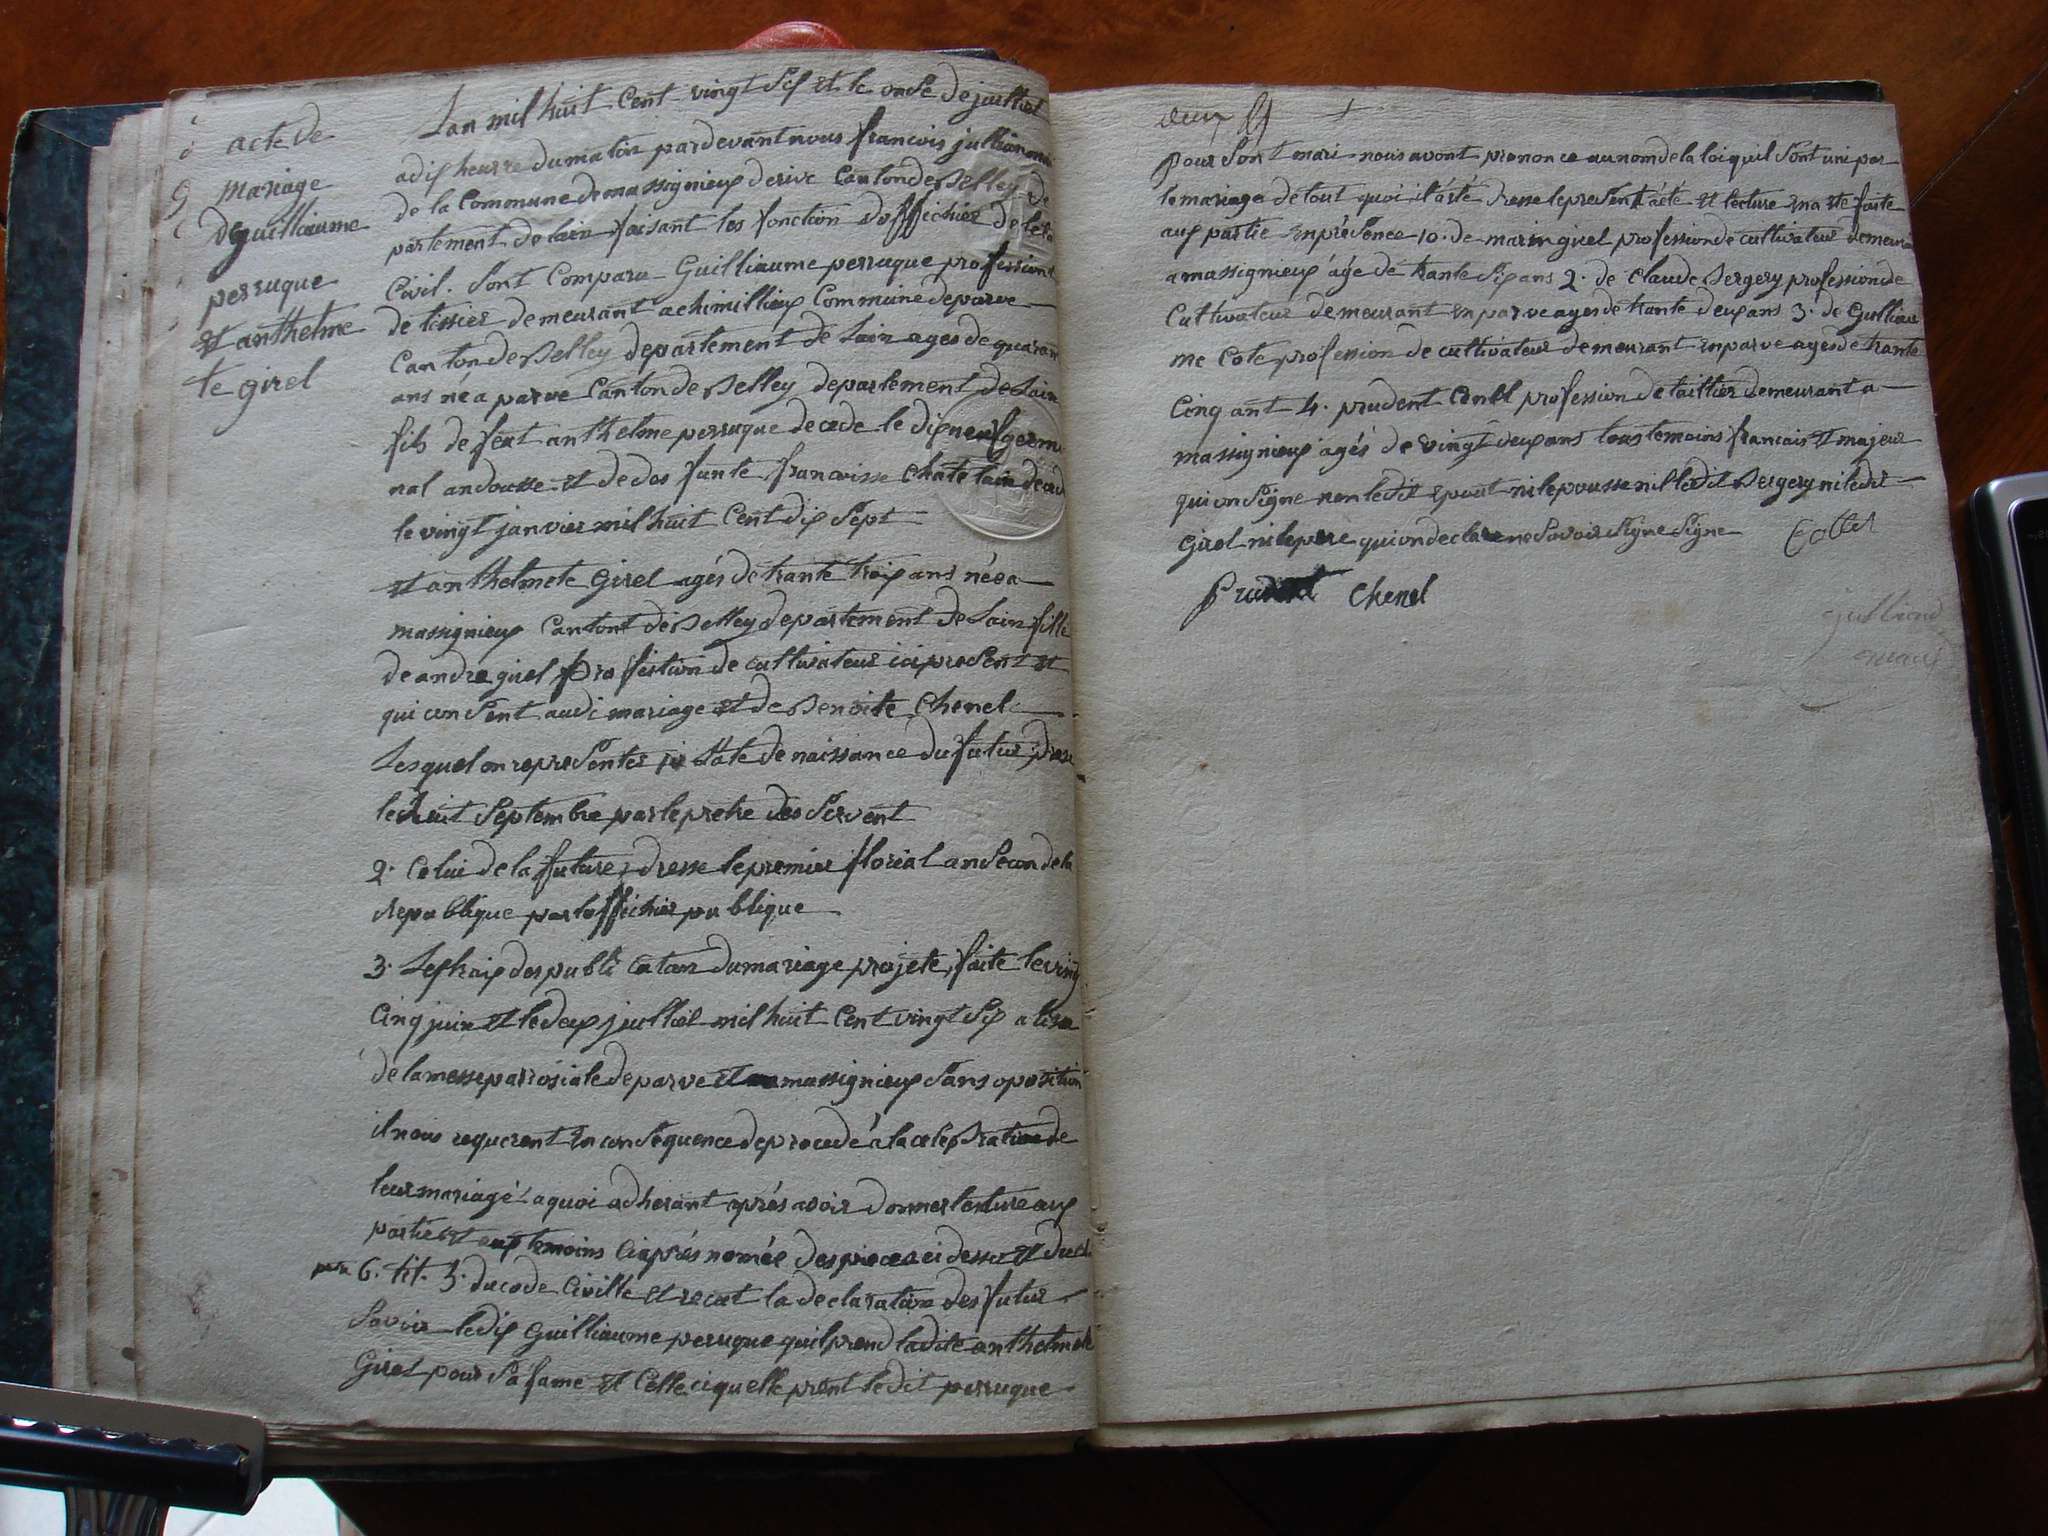 acte de
mariage
de guilliaume
perruque
et anthelme
te girel
Lan mil huit Cent vingt Sis et le onse de juilliet
a dis heurre du matin par devant nous francois jullian maire
de la Commune de massignieux derive Canton de Belley de
partement de lain faisant les fonction doffichier de leta
Civil. Sont Comparu Guilliaume perruque profession
de tissier demeurant a chimillieu Commune de parve
Canton de Belley departement de Lain ages de quaran
ans né a parve Canton de Belley departement de Lain
fils de feut anthelme perruque decede le dis neuf germi
nal an dousse et de des funte francoisse chatelain deced
le vingt janvier mil huit Cent dis Sept
et anthelmete Girel agés de trante trois ans née a
massignieux Cantont de Belley departement de Lain fille
de andre girel profestion de cultivateur ici present et
qui conSent audi mariage et de Benoite Chenel
Lesquel on representer 1º Late de naissance du futur, dresse
le huit Septembre par le pretre des Servent
2. Celui de la future, dresse le premier florial an Secon de la
republique par loffichier publique
3. Les trais des publi catan du mariage projete, faite le vingt
Cinq juin et le deux juilliet mil huit Cent vingt Sis a lisue
de la messe parrosiale de parve et massignieux Sans oposition
il nous requerent En conSequence de procede a la celebration de
leur mariage a quoi adherant aprés avoir donner lecture aux
partie et aux temoins Ciaprés nomée des piece ci dessu et du ch
6. tit. 5. du code Civille et recut la declaration des futur
Savoir ledis Guilliaume perruque quil prend ladite anthelmete
Girel pour Sa fame et Celle ci quelle prent ledit perruque
deux
pour Sont mari nous avont prononce au nom de la loi quil Sont uni par
le mariage de tout quoi il a été dresse le present acté et lecture ena ete faite
aux partie En présence 1o. de marin girel profession de cultivateur demeurant
a massignieux agé de trante Sis ans 2. de Claude Bergery profession de
Cultivateur demeurant en parve ages de trante deux ans 3. de Guilliau
me Cote profession de cultivateur demeurant en parve agés de trante
Cinq ant 4. prudent Cenel profession de taillier demeurant a
massignieux agés de vingt deux ans tous temoins francais et majeur
qui on Signe non ledit epout ni lepousse ni ledit Bergery ni ledit
Girel ni le pere qui on declare ne Savoir Signe Signe Cottet
Prudent Chenel
Julliand
maire